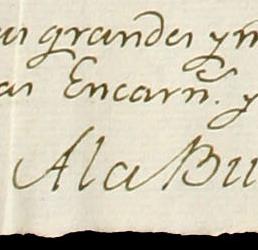 grandes y
Encarn.ⁿ y
A la Bu